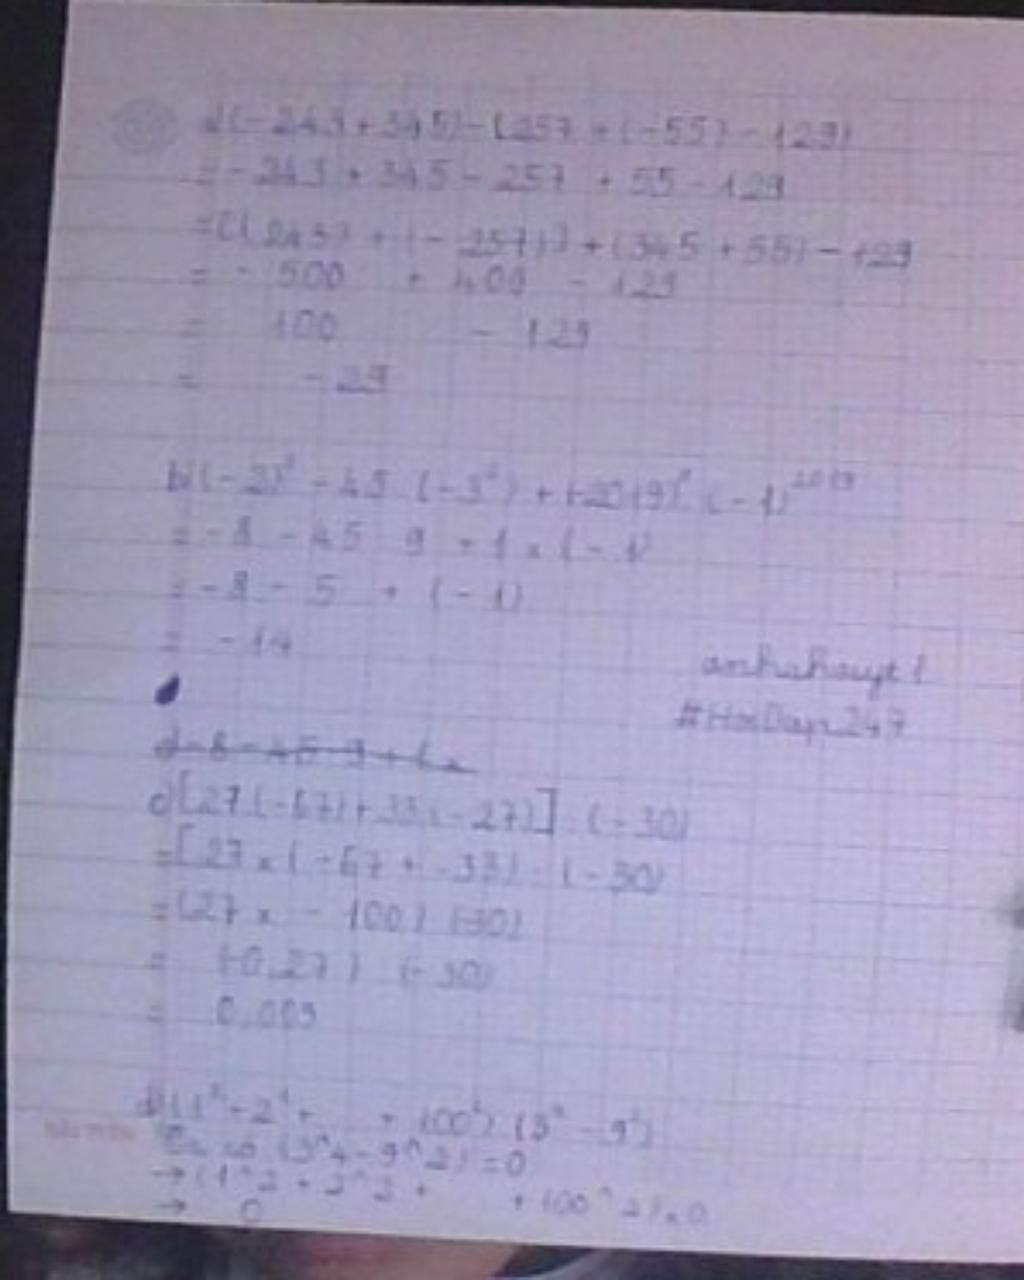 (-243+345)-(257+(-55)-129)
=-243+345-257+55-129
=[(243)+(-257)]+(345+55)-129
= -500 + 400 - 129
= 100 - 129
= -29
b)(-2)³-45 (-3²)+(-2019)⁰ (-1)²⁰¹⁹
=-8-45 9+1×(-1)
=-8-5 +(-1)
= -14
anhchauyt1
#HoiDap247
c)[27.(-67)+33.(-27)] (-30)
=[27×(-67+-33):(-30)
=(27×-100) (-30)
= (-0,27) (-30)
= 0.009
d)(1²+2²+ + 100²) (3⁴-9²)
(3^4-9^2)=0
→(1^2+2^2+ +100^2)×0
→ 0